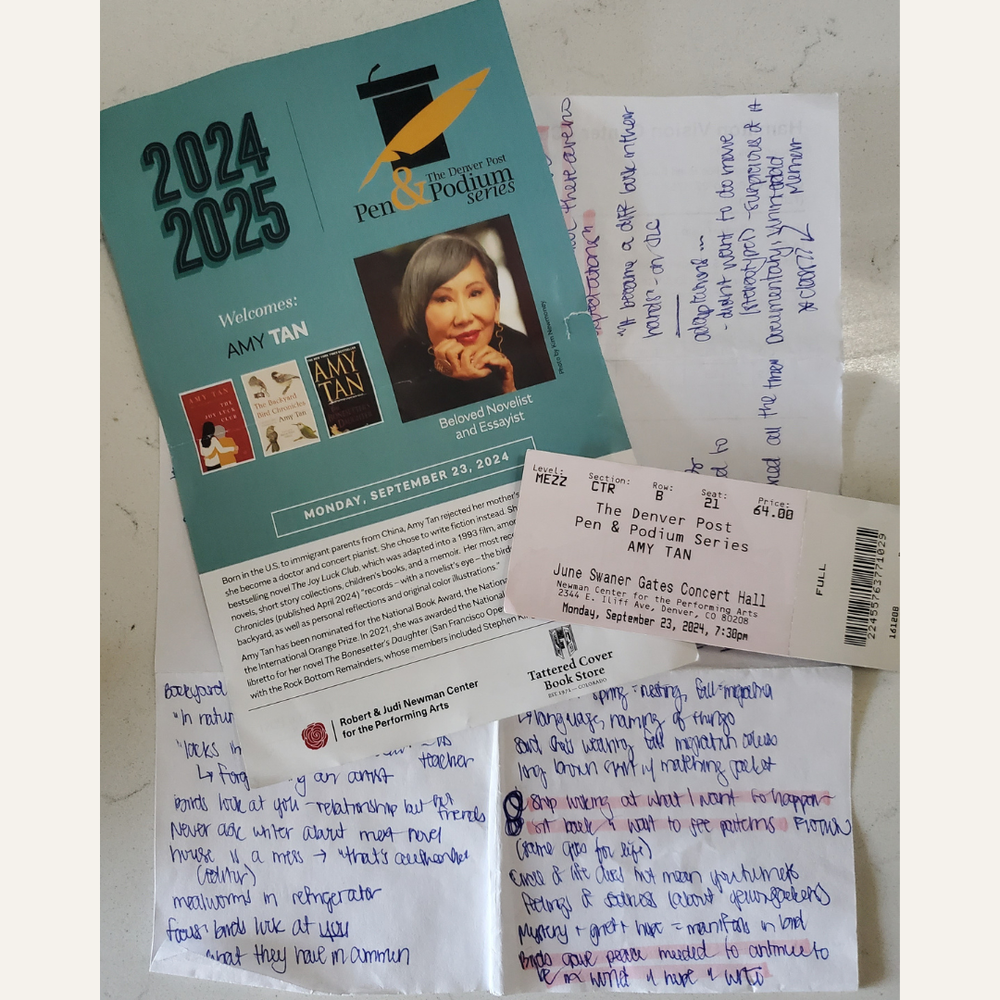 2024
2025
The Denver Post
Pen & Podium
series
Welcomes:
AMY TAN
AMY TAN
THE
JOY LUCK
CLUB
The Backyard
Bird Chronicles
Amy Tan
AMY
TAN
Photo by Kim Newmoney
Beloved Novelist
and Essayist
MONDAY, SEPTEMBER 23, 2024
Born in the U.S. to immigrant parents from China, Amy Tan rejected her mother's
she become a doctor and concert pianist. She chose to write fiction instead.
bestselling novel The Joy Luck Club, which was adapted into a 1993 film,
novels, short story collections, children's books, and a memoir. Her most
Chronicles (published April 2024) "records – with a novelist's eye – the
backyard, as well as personal reflections and original color illustrations."
Amy Tan has been nominated for the National Book Award, the
the International Orange Prize. In 2021, she was awarded the National
libretto for her novel The Bonesetter's Daughter (San Francisco
with the Rock Bottom Remainders, whose members included Stephen
Robert & Judi Newman Center
for the Performing Arts
Tattered Cover
Book Store
EST 1971 — COLORADO
Level: Section: Row: Seat: Price:
MEZZ CTR B 21 64.00
The Denver Post
Pen & Podium Series
AMY TAN
June Swaner Gates Concert Hall
Newman Center for the Performing Arts
2344 E. Iliff Ave, Denver, CO 80208
Monday, September 23, 2024, 7:30pm
FULL
22455763771029
161208
there are no
expectations"
"It became a diff book in their
hands" - on JLC
adaptations...
- didn't want to do movie
(stereotypes) - suspicious of it
Documentary,
Memoir
all the time
Backyard
"In
"lacks
teacher
an artist
birds look at you - relationship but not friends
Never ask writer about next novel
house is a mess → "that's
mealworms in refrigerator
focus: birds look at you
what they have in common
spring = nesting, fall = migration
↳ language, naming of things
said she's wearing fall migration colors
long brown skirt w/ matching jacket
stop looking at what I want to happen
sit back & wait to see patterns FICTION
(same goes for life)
Circle of life does not mean
feelings of sadness (about
Mystery + grief + hope = manifests in bird
Birds gave peace needed to continue to
be in world & hope & write